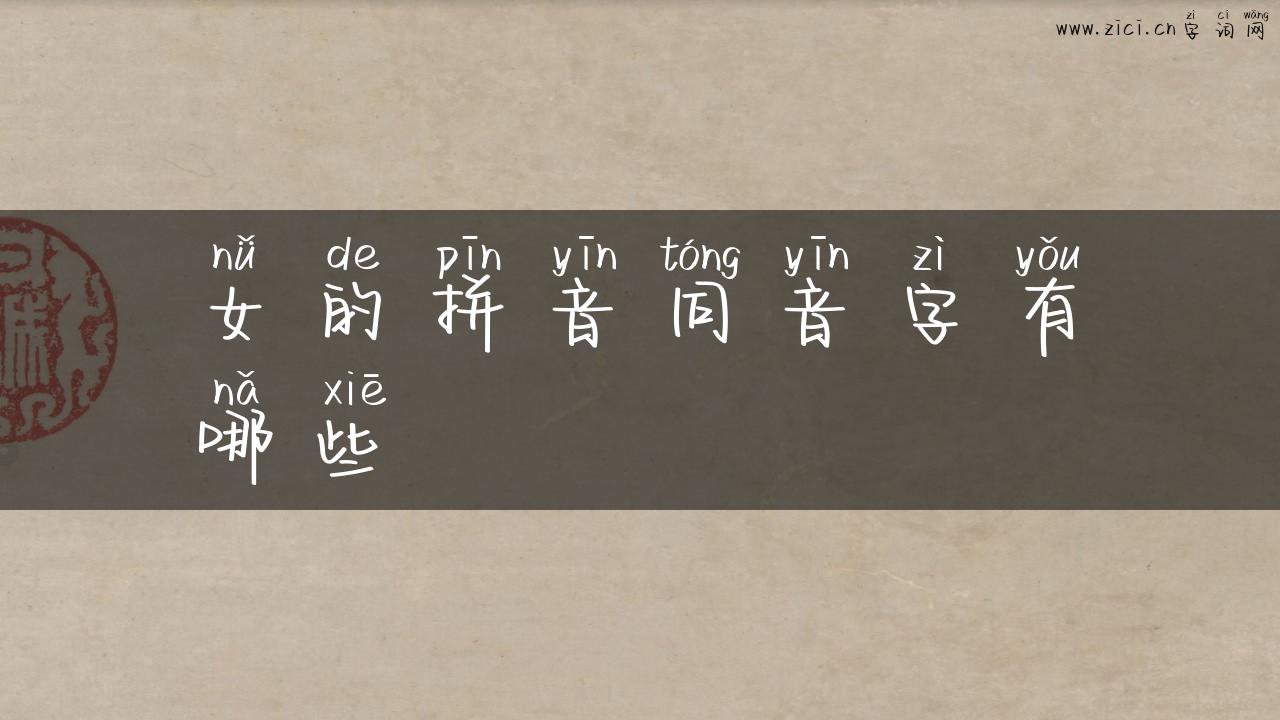 zì cí wǎng
www.zici.cn 字词网
nǚ de pīn yīn tóng yīn zì yǒu
女的拼音同音字有
nǎ xiē
哪些